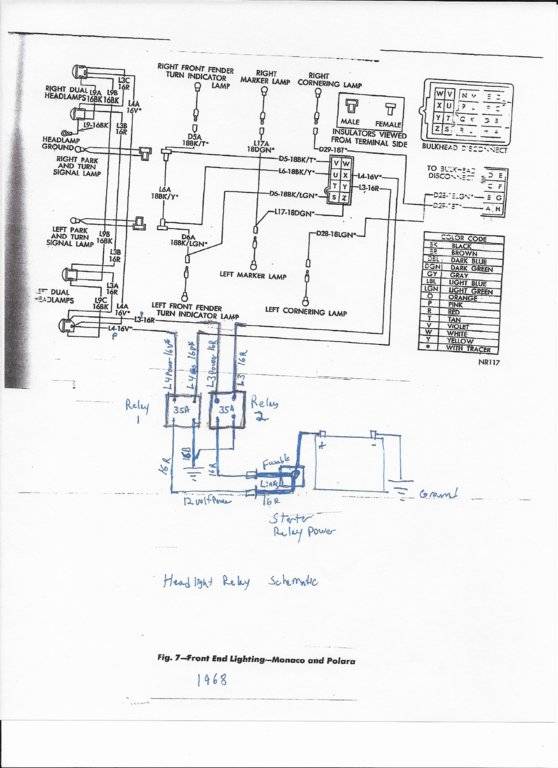 RIGHT FRONT FENDER
TURN INDICATOR
LAMP
RIGHT
MARKER LAMP
RIGHT
CORNERING LAMP
RIGHT DUAL
HEADLAMPS
L3C
16R
L9A
16BK
L9B
16BK
L4A
16V*
L9-16BK
L3B
16R
HEADLAMP
GROUND
RIGHT PARK
AND TURN
SIGNAL LAMP
D5A
18BK/T*
L17A
18DGN*
D29-18T*
MALE
FEMALE
INSULATORS VIEWED
FROM TERMINAL SIDE
W V
X U
Y T
Z S
BULKHEAD DISCONNECT
D5-18BK/T*
L6-18BK/Y*
D6-18BK/LGN*
L17-18DGN*
V W
U X
T Y
S Z
L4-16V*
L3-16R
TO BULKHEAD
DISCONNECT
D28-18LGN*
D29-18T*
L6A
18BK/Y*
D6A
18BK/LGN*
D28-18LGN*
LEFT PARK
AND TURN
SIGNAL LAMP
LEFT MARKER LAMP
L3B
16R
L3A
16R
L9C
16BK
L4A
16V*
DUAL
HEADLAMPS
LEFT FRONT FENDER
TURN INDICATOR LAMP
LEFT CORNERING LAMP
L3-16R
L4-16V*
COLOR CODE
BK BLACK
BR BROWN
DBL DARK BLUE
DGN DARK GREEN
GY GRAY
LBL LIGHT BLUE
LGN LIGHT GREEN
O ORANGE
P PINK
R RED
T TAN
V VIOLET
W WHITE
Y YELLOW
* WITH TRACER
NR117
L4 Power 16V*
L3 Power 16R
L3 16R
Relay
1
35A
35A
Relay
2
16R
16R
Fusable
Link
12 volt Power
16R
+
-
Ground
Starter
Relay Power
Headlight Relay Schematic
Fig. 7—Front End Lighting—Monaco and Polara
1968